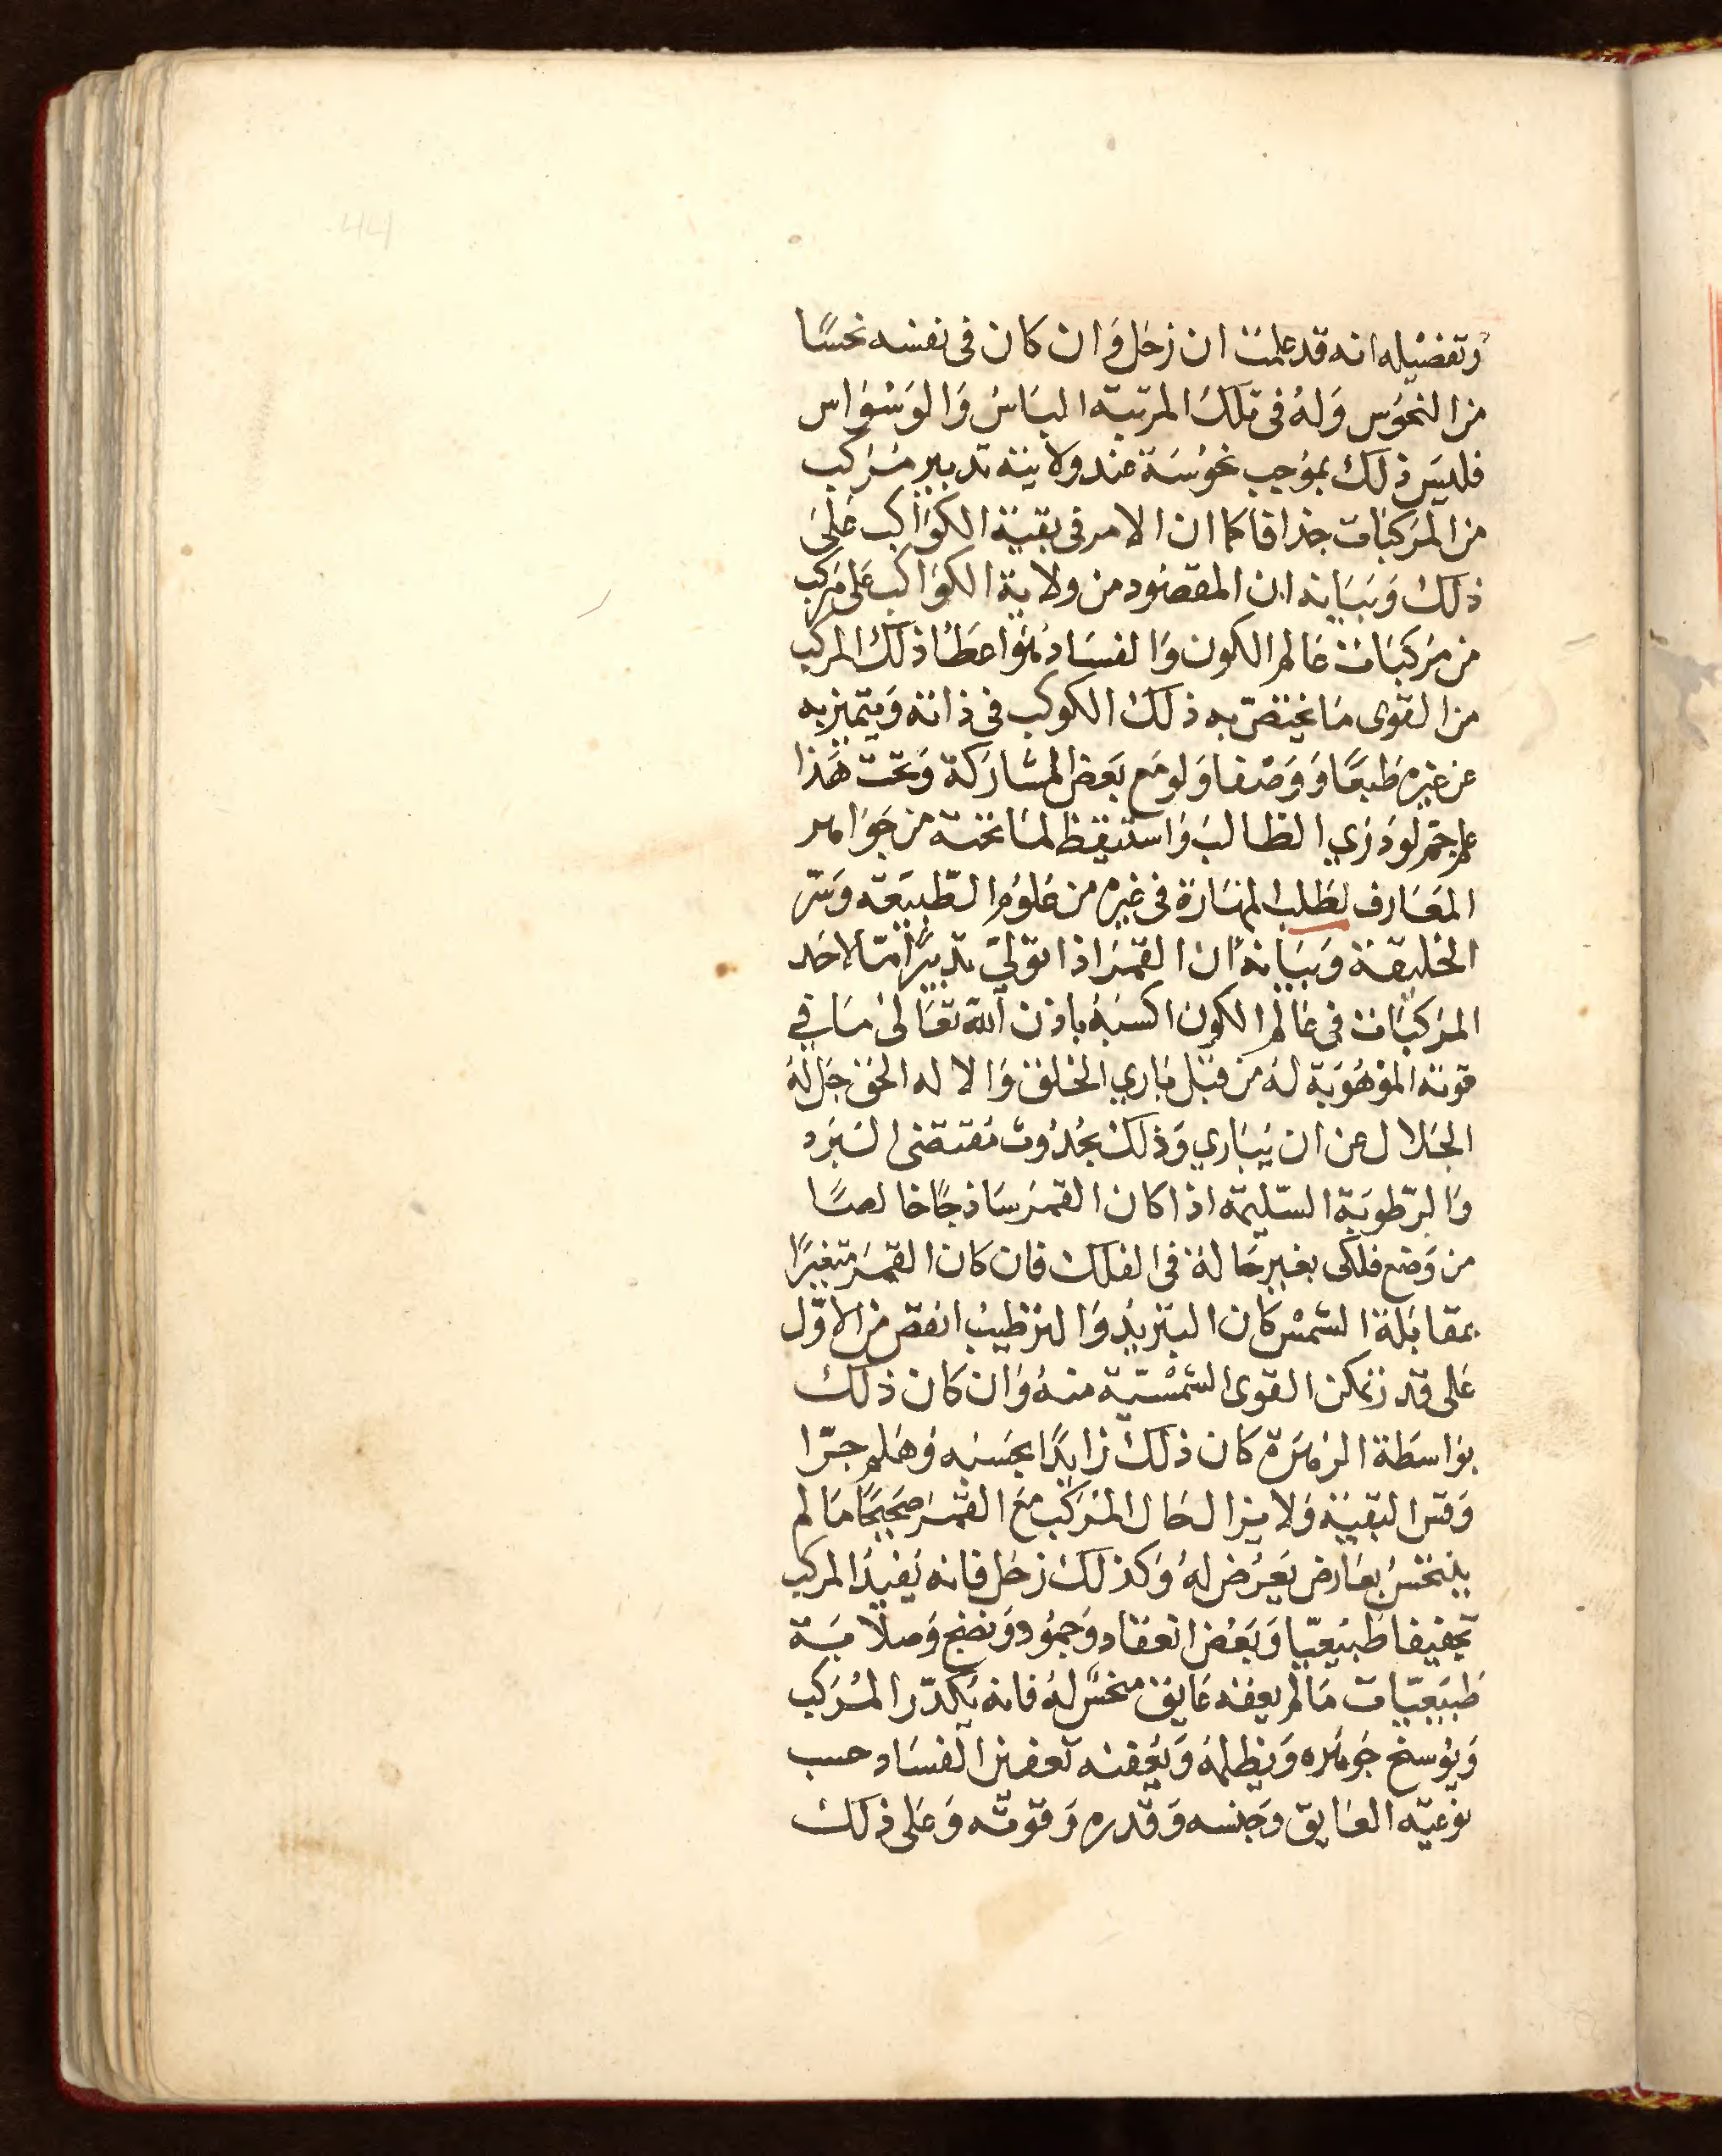 وتفضيله انه قد علمت ان زحل وان كان فى نفسه نحسًا
من النحوس وله فى تلك المرتبة الباس والوسواس
فليس ذلك بموجب نحوسة عند ولايته تدبير مركب
من المركبات جذافا كما ان الامر فى بقية الكواكب على
ذلك وبيانه ان المقصود من ولاية الكواكب على مركب
من مركبات عالم الكون والفساد هو اعطا ذلك المركب
من القوى ما يختص به ذلك الكوكب فى ذاته ويتميز به
عن غيره طبعًا ووصفا ولو مع بعض المشاركة وتحت هذا
علم جم لو درى الطالب واستيقظ لما تحته من جواهر
المعارف لطلب المهارة فى غيره من علوم الطبيعة وسر
الخليقة وبيانه ان القمر اذا تولى تدبيرًا ما لاحد
المركبات فى عالم الكون اكسبه باذن الله تعالى ما في
قوته الموهوبة له من قبل باري الخلق والاله الحق جل له
الجلال عن ان يبارى وذلك بحدوث مقتضى البرد
والرطوبة السليمة اذا كان القمر ساذجًا خالصًا
من وضع فلكى بغير حاله فى الفلك فان كان القمر متغيرًا
بمقابلة الشمس كان التبريد والترطيب انقص من الاول
على قدر تمكن القوى الشمسية منه وان كان ذلك
بواسطة الزهرة كان ذلك زايدًا بحسبه وهلم جرّا
وقس البقية ولا يزال حال المركب مع القمر صحيحًا ما لم
ينتحس بعارض يعرض له وكذلك زحل فانه يفيد المركب
تجفيفا طبيعيّا وبعض انعقاد وجمود ونضج وصلابة
طبيعيّات ما لم يعقه عايق منحس له فانه يكدّر المركب
ويوسخ جوهره ويظلمه ويعفنه تعفين الفساد حسب
نوعية العايق وجنسه وقدره وقوته وعلى ذلك